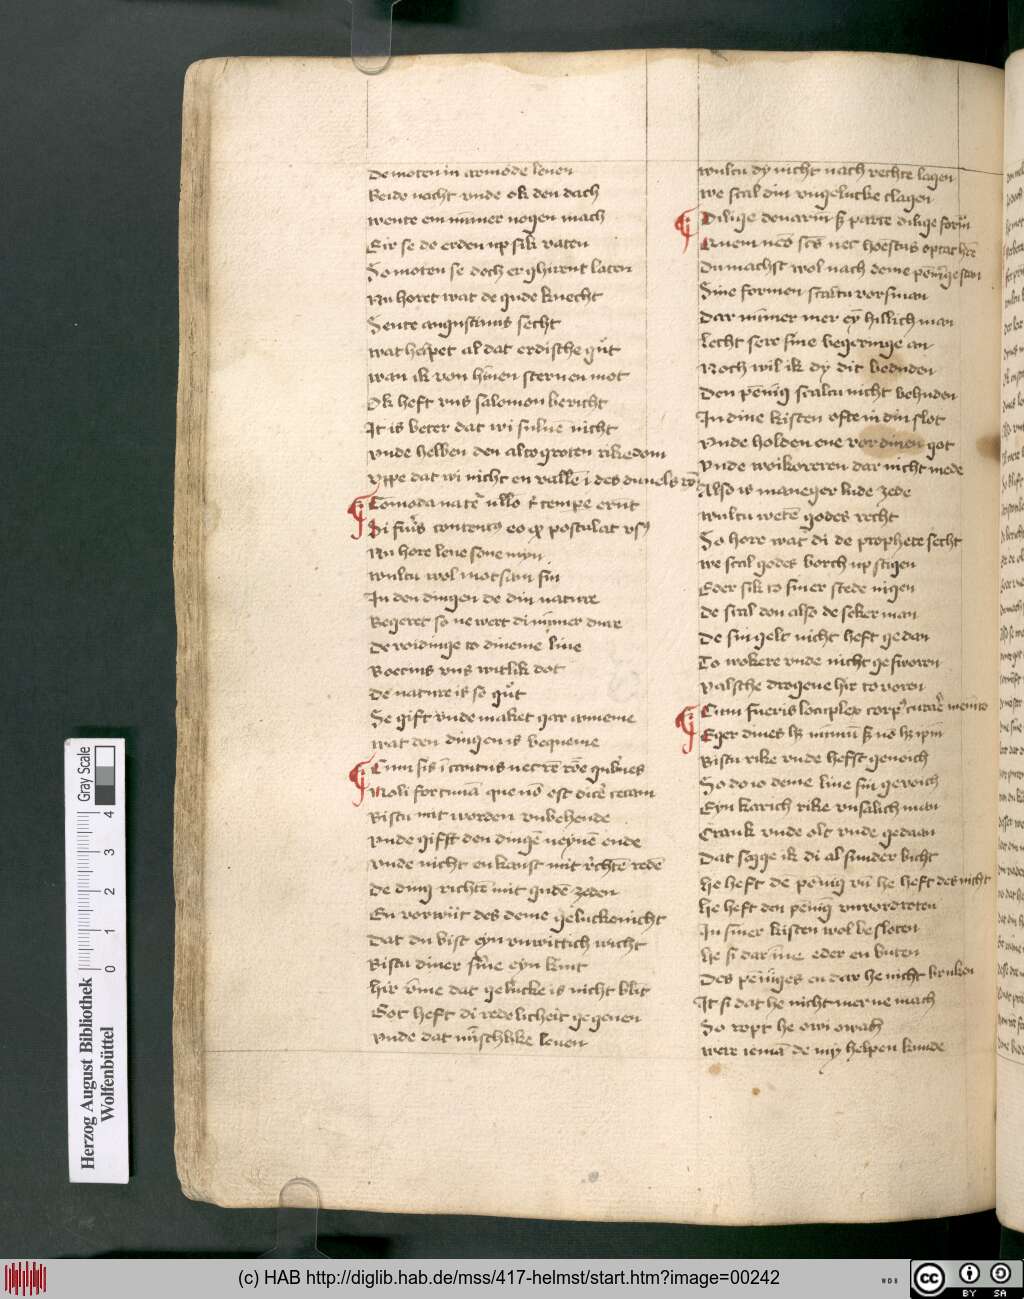 De moten in armode leuen
Beide nacht vnde ok den dach
Wente em nũmer nogen mach
Eir se de erden vp sik vaten
So moten se doch er ghirent laten
Nu horet wat de gude knecht
Sente augustinus secht
Wat helpet al dat erdische gůt
Wan ik von hĩnen sternen mot
Ok heft vns salomon bericht
It is beter dat wi sulue nicht
vnde hebben den alto groten rikedom
vppe dat wi nicht en vallẽ ĩ des duuels
Comoda natẽ ullo t tempe erũt
Si fũis contentus eo qͥ postulat vsꝰ
Nu hore leue sone myn
wultu wol motsam sin
In den dingen de din nature
Begeret so ne wert di nũmer duur
De voidinge to dineme liue
Boecius vns witlik dot
De nature is so gůt
Se gift vnde maket gar anneme
wat den dingen is bequeme
Cum sis ĩcautus nec rẽ rõe gubnes
Noli fortunã que nõ est dicẽ cecam
Bistu mit worden vnbehende
vnde gifft den dingẽ neynẽ ende
vnde nicht en kanst mit rechtẽ redẽ
De ding richtẽ mit gudẽ zeden
En vorwiit des deme gelucke nicht
Dat du bist eyn vnwittich wicht
Bistu diner sĩne eyn kint
hir vm̃e dat gelucke is nicht blit
Got heft di redelicheit gegeuen
vnde dat mĩschlike leuen
wultu dy nicht nach rechte lagen
we scal din vngelucke clagen
Dilige denariũ sʒ parce dilige formã
Quem nẽo scs nec hoestus optat hrẽ
Du machst wol nach deme peninge stan
Sine formen scaltu vorsman
Dar nũmer mer eỹ hillich man
lecht sere sine begeringe an
Noch wil ik dy dit beduden
Den pẽnig scaltu nicht behuden
In dine kisten ofte in din slot
vnde holden ene vor dinen got
vnde woikoreren dar nicht mede
Also is maneger lude zede
wultu wetẽ godes recht
So hore wat di de prophete secht
we scal godes borch vp stigen
Eder sik to siner stede nigen
De scal don also de seker man
De sin gelt nicht heft gedan
To wokere vnde nicht gesworn
valsche drogene hir to voren
Cum fueris locuplex corpꝰ curare memẽto
Eger diues hʒ nũmũ sʒ nõ hʒ ipm̃
Bistu rike vnde hefst genoich
So do io deme liue sin gevoich
Eyn karich rike vnsalich man
Crank vnde olt vnde gedaan
Dat segge ik di al sunder bicht
he heft de penig vñ he heft des nicht
he heft den penig vnvordroten
In siner kisten wol besloten
he si dar ĩne eder en buten
Des penĩges en dar he nicht bruken
It si dat he nicht mer ne mach
So ropt he owi owach
were iemã de my helpen kunde
Herzog August Bibliothek
Wolfenbüttel
0 1 2 3 4
Gray Scale
(c) HAB http://diglib.hab.de/mss/417-helmst/start.htm?image=00242
WDB
cc BY SA